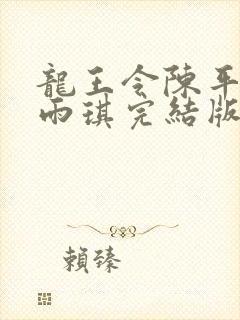 龍王令陳平
雨琪完結版
賴臻